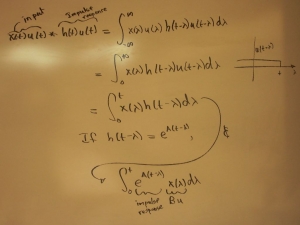 input Impulse response
x(t)u(t) * h(t)u(t) = ∫_{-∞}^{∞} x(λ)u(λ)h(t-λ)u(t-λ)dλ
= ∫_0^∞ x(λ)h(t-λ)u(t-λ)dλ
u(t-λ)
t
= ∫_0^t x(λ)h(t-λ)dλ
If h(t-λ) = e^{A(t-λ)},
∫_0^t e^{A(t-λ)} x(λ)dλ
impulse response Bu